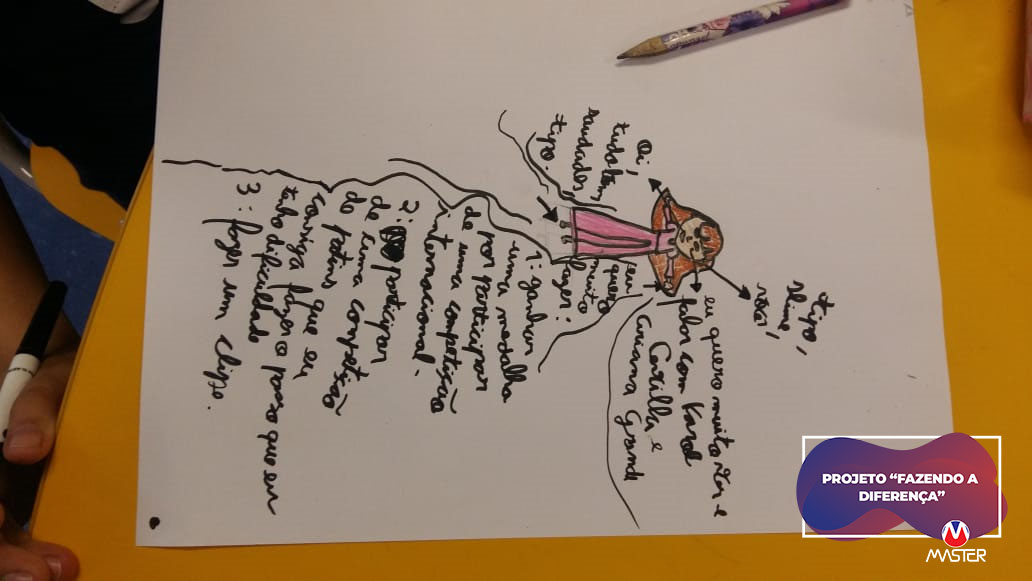 tipo,
slime,
Oi,
tudo bem,
saudades,
tipo.
eu quero muito ver e
falar com Karol
e
Ariana Grande
eu
quero
muito
fazer:
1: ganhar
uma medalha
por participar
de uma competição
internacional.
2: participar
de uma competição
de patins que eu
consiga fazer o passo que eu
tenho dificuldade
3: fazer um clipe.
PROJETO “FAZENDO A
DIFERENÇA”
MASTER